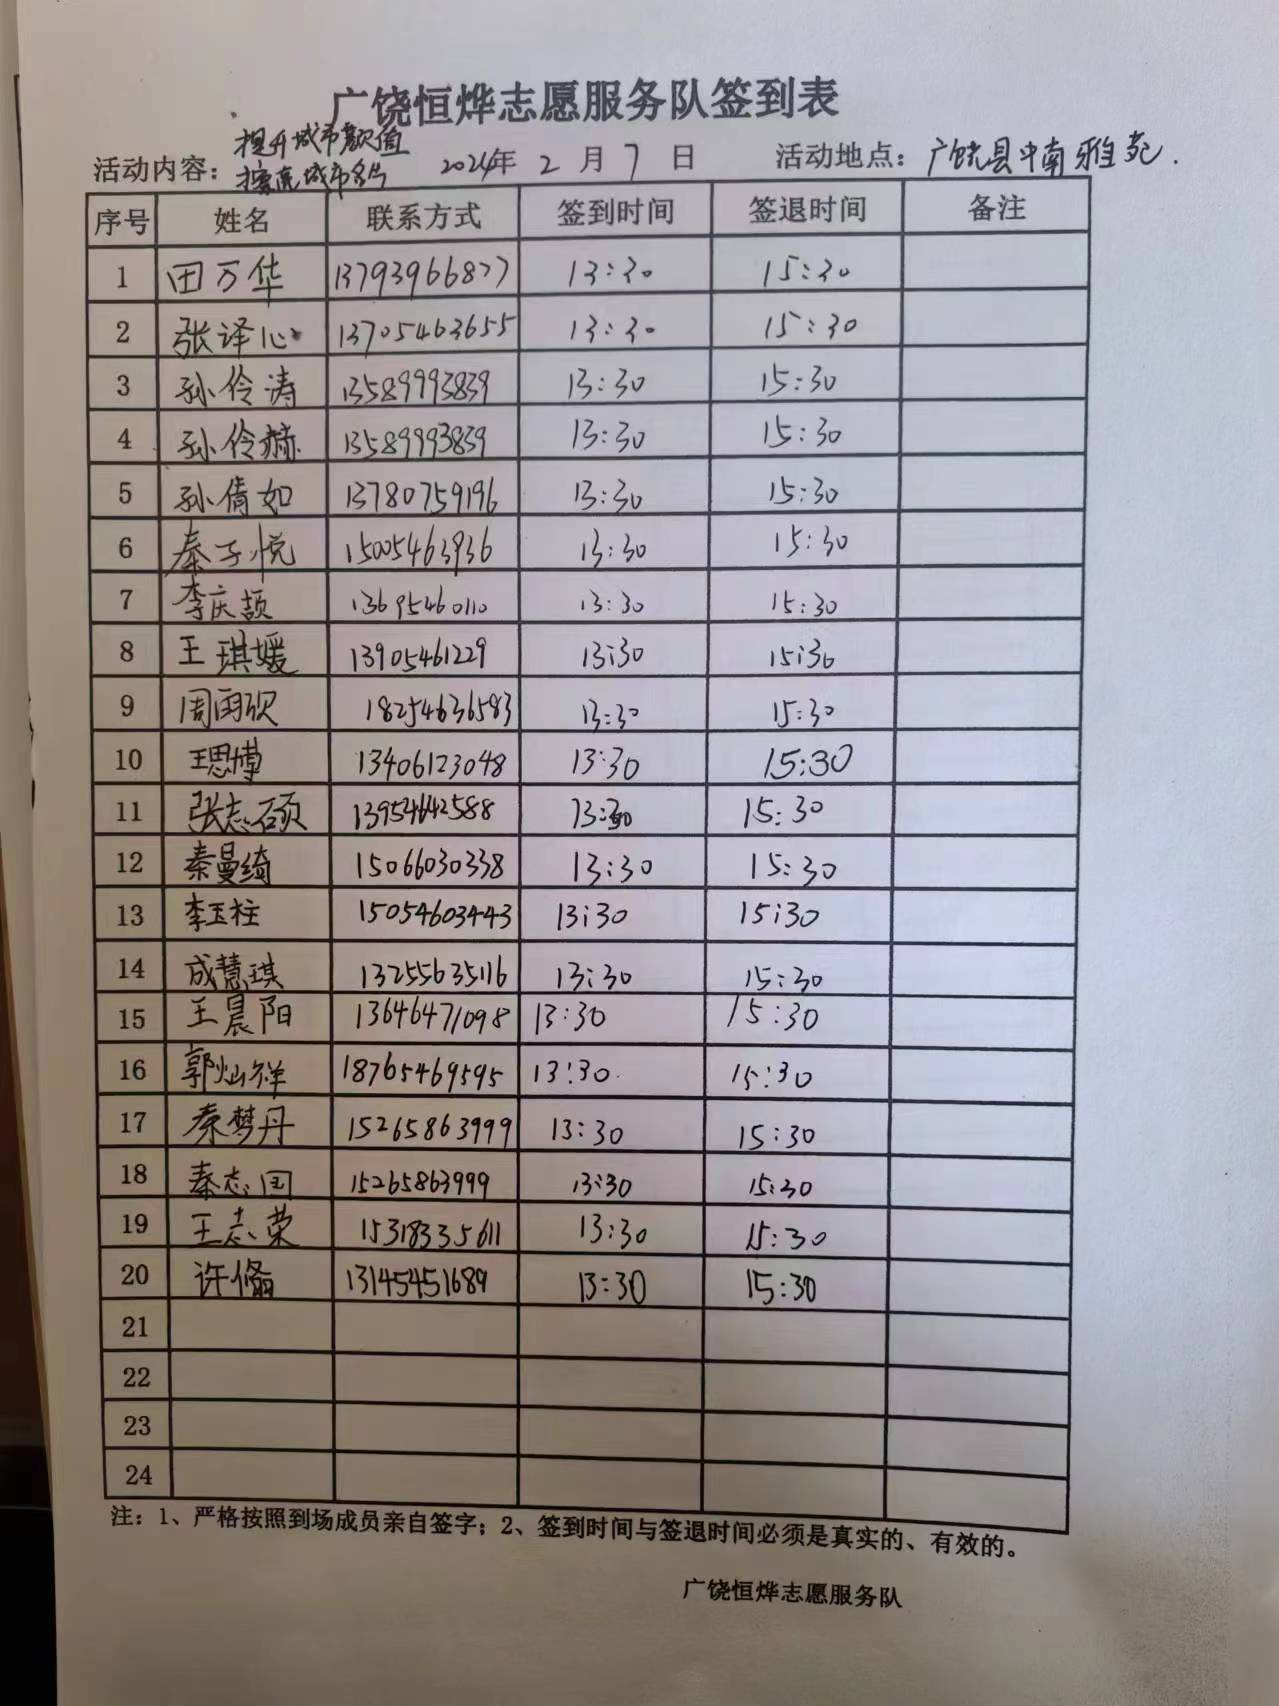 广饶恒烨志愿服务队签到表
活动内容：提升城市颜值 擦亮城市名片 2024年 2 月 7 日 活动地点：广饶县中南雅苑.
序号 姓名 联系方式 签到时间 签退时间 备注
1 田万华 13793966877 13:30 15:30
2 张译心 13705463655 13:30 15:30
3 孙伶涛 13589993839 13:30 15:30
4 孙伶赫 13589993839 13:30 15:30
5 孙倩如 13780759196 13:30 15:30
6 秦子悦 15005463936 13:30 15:30
7 李庆颉 13695460110 13:30 15:30
8 王琪媛 13905461229 13:30 15:30
9 18254636583 13:30 15:30
10 王思博 13406123048 13:30 15:30
11 张志硕 13954642588 13:30 15:30
12 秦曼绮 15066030338 13:30 15:30
13 李玉柱 15054603443 13:30 15:30
14 成慧琪 13255635116 13:30 15:30
15 王晨阳 13646471098 13:30 15:30
16 郭灿祥 18765469595 13:30 15:30
17 秦梦丹 15265863999 13:30 15:30
18 秦志国 15265863999 13:30 15:30
19 王志荣 15318335611 13:30 15:30
20 许翛 13145451689 13:30 15:30
21
22
23
24
注：1、严格按照到场成员亲自签字；2、签到时间与签退时间必须是真实的、有效的。
广饶恒烨志愿服务队